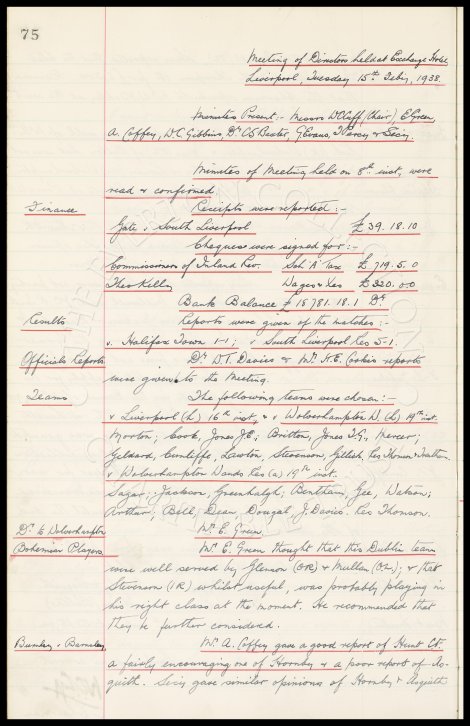 75
Meeting of Directors held at Exchange Hotel
Liverpool, Tuesday 15th Feby, 1938.
Minutes Present :- Messrs W Cuff (Chair), E Green,
A. Coffey, W.C. Gibbins, Dr C.S. Baxter, G Evans, T Percy & Secy.
Minutes of Meeting held on 8th inst, were
read & confirmed.
Finance
Receipts were reported :-
Gate v South Liverpool £39. 18. 10
Cheques were signed for :-
Commissioners of Inland Rev. Sch A Tax £719. 5. 0
Theo Kelly Wages & Xes £320. 0. 0
Bank Balance £18781. 18. 1 Dr
Results
Reports were given of the matches :-
v. Halifax Town 1-1; v South Liverpool Res 5-1.
Officials Reports
Dr D.T. Davies & Mr H.E. Cooke's reports
were given to the Meeting.
Teams
The following teams were chosen :-
v Liverpool (h) 16th inst, & v Wolverhampton W. (h) 19th inst.
Morton; Cook, Jones J.E; Britton, Jones T.G, Mercer;
Geldard, Cunliffe, Lawton, Stevenson, Gillick. Res Thomson &
v Wolverhampton Wands Res (a) 19th inst.
Sagar; Jackson, Greenhalgh; Bentham, Gee, Watson;
Arthur, Bell, Dean, Dougal, J. Davies. Res Thomson.
Dr. to Wolverhampton
Mr. E. Green.
Bohemian Players
Mr. E. Green thought that this Dublin team
were well served by Glenson (OR) & Mullen (OL); & that
Stevenson (IR) whilst useful, was probably playing in
his right class at the moment. He recommended that
they be further considered.
Burnley v Barnsley
Mr. A. Coffey gave a good report of Hunt Ct.
a fairly encouraging one of Hornby & a poor report of As-
quith. Secy gave similar opinions of Hornby & Asquith